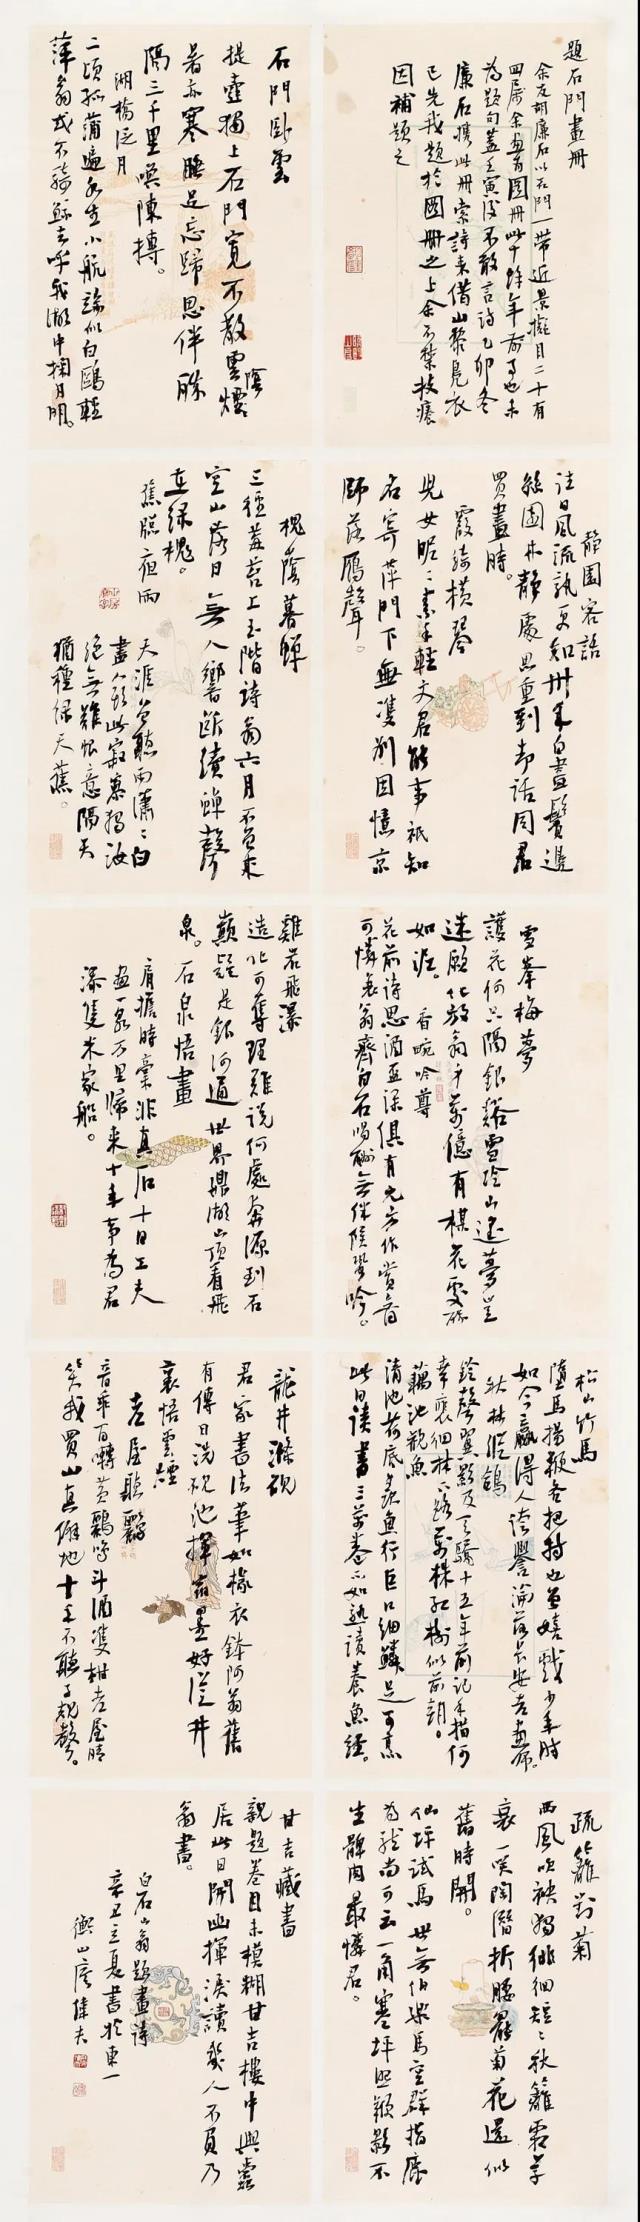 題石門畫冊
余友胡廉石以石門一帶近景擬目二十有
四屬余畫為圖冊此十餘年前事也未
為題句蓋壬寅後不敢言詩乙卯冬
廉石攜此冊索詩來借山黎鳧衣
已先我題於圖冊之上余不禁技癢
因補題之
石門臥雲
提壺獨上石門寬不散雲煙
暑亦寒睡足忘歸思伴
隔三千里喚陳摶。
湖橋泛月
二頃孤蒲遍水生小航論似白鷗輕
萍翁或不騎鯨去呼我湖中掬月明。
靜園客話
往日風流孰更知卅年白盡鬢邊
絲園林靜處思重到却話同君
買畫時。
霞綺橫琴
兒女昵昵素手輕文君能事祇知
名寄萍門下無雙別因憶京
師落雁聲。
槐蔭暮蟬
三徑莓苔上玉階詩翁六月不曾來
空山落日無人響斷續蟬聲
在綠槐。
蕉牎夜雨
天涯曾聽雨瀟瀟白
盡人頭此寂寥獨汝
絕無離恨意隔天
猶種綠天蕉。
雪峯梅夢
護花何只隔銀谿雪冷山遙夢豈
迷願化放翁身萬億有楳花處醉
如泥。
香畹吟尊
花前詩思酒盃深俱有尤宜作賞音
可憐衰翁齊白石喝酬無伴候蛩吟。
雞岩飛瀑
造化可奪理難說何處奔源到石
巔疑是銀河通世界鼎湖山頂看飛
泉。
石泉悟畫
肩擔時豪非真石十日工夫
畫一泉萬里歸來十年事為君
添隻米家船。
松山竹馬
墮馬揚鞭各把持也曾嬉戲少年時
如今贏得人誇譽淪落長安老畫師。
秋林縱鴿
鈴聲翼影及天驕十五年前記手招何
幸裵徊林下路萬株紅樹似前朝。
藕池觀魚
清池荷底羨魚行巨口細鱗足可烹
此日讀書三萬卷不如熟讀養魚經。
龍井滌硯
君家書法筆如椽衣鉢阿翁舊
有傳日洗硯池揮翁墨好從井
裏悟雲煙
老屋聽鸝
音乖百囀黃鸝鳴斗酒雙柑老屋晴
笑我買山真僻地十年不聽子規聲。
疏籬對菊
西風吹袂獨徘徊短短秋籬霜草
衰一笑陶潛折腰罷菊花還似
舊時開。
仙坪試馬
世無伯樂馬空群指鹿
為 尚可云一角寒坪照鞭影不
生髀肉最憐君。
甘吉藏書
親題卷目未模糊甘吉樓中與蠹
居此日開函揮淚讀幾人不負乃
翁書。
白石山翁題畫詩
辛丑立夏書於東一
衡山 偉夫